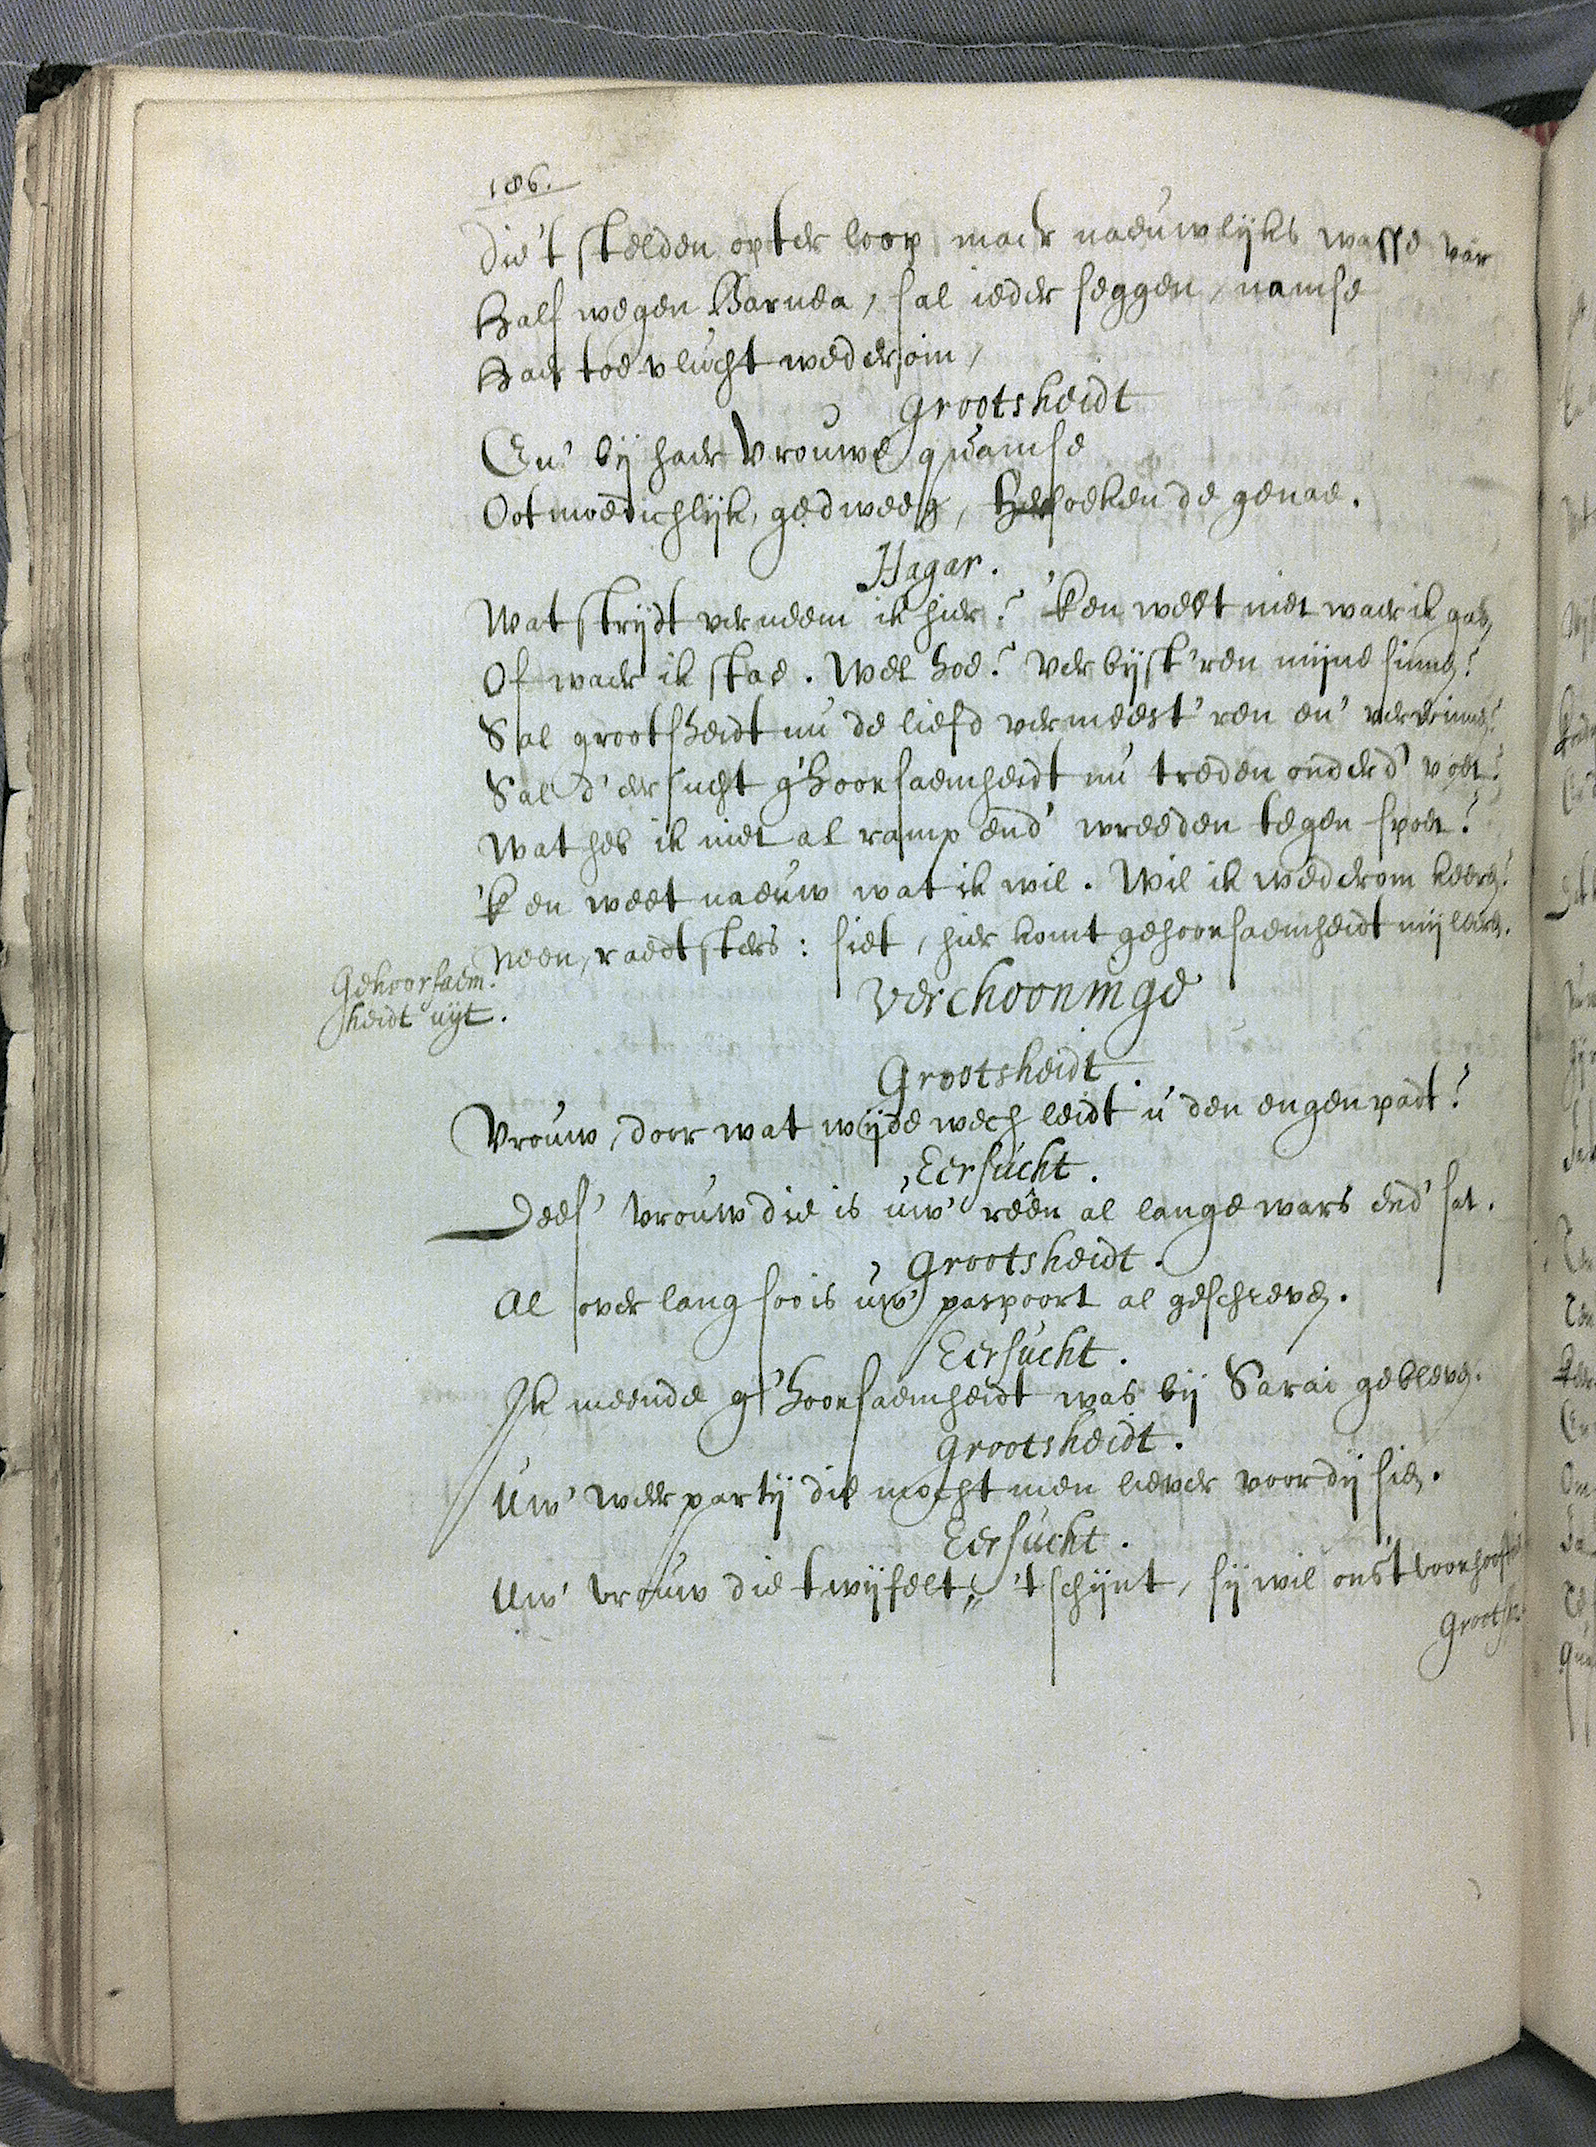 186.
Die't stelden opter loop, maer naeuwlijks wasse van
Half wegen Barnea, sal ieder seggen, namse
Haer toevlucht wederom,
Grootsheidt
En' bij haer Vrouwe quamse
Ootmoedichlijk, gedweeg, soekende genae.
Hagar.
Wat strijdt verneem ik hier? 'k en weet niet waer ik gae,
Of waer ik stae. Wel hoe? Verbijst'ren mijne sinnen?
Sal grootsheidt nu de liefd vermeest'ren en'
Sal d'eersucht g'hoorsaemheidt nu treden onder d' voet?
Wat heb ik niet al ramp end' wreeden tegenspoet?
'k en weet naeuw wat ik wil. Wil ik wederom keeren?
Neen, raedtsters: siet, hier komt gehoorsaemheidt mij leeren.
Gehoorsaem-
heidt uijt.
Verthooninge
Grootsheidt.
Vrouw, door wat wijde wech leidt u den engen padt?
Eersucht.
Dees' vrouw die is uw' reên al lange wars end' sat.
Grootsheidt.
Al over lang soo is uw' paspoort al geschreven.
Eersucht.
Ik meende g'hoorsaemheidt was bij Sarai gebleven.
Grootsheidt.
Uw' weerpartij die mocht men liever voor dij sien.
Eersucht.
Uw' vrouw die twijfelt; 't schijnt, sij wil ons 't voorhooft
Grootsh.